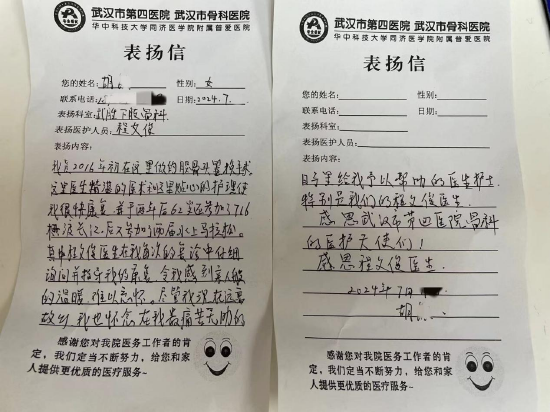 武汉市第四医院 武汉市骨科医院
华中科技大学同济医学院附属普爱医院
表扬信
您的姓名: 胡 性别: 女
联系电话: 日期: 2024.7.
表扬科室: 武胜下肢骨科
表扬医护人员: 程文俊
表扬内容:
我是2016年初在这里做的股骨头置换术
医生精湛的医术和这里贴心的护理使
我很快康复。并于两年后62岁还参加了716
横渡长江后又参加了两届水上马拉松。
其中程文俊医生在我每次的复诊中仔细
询问并指导我的康复。令我感到亲人般
的温暖,难以忘怀。尽管我现在远离
故乡,我也怀念在我最痛苦无助的
感谢您对我院医务工作者的肯
定,我们定当不断努力,给您和家
人提供更优质的医疗服务~
武汉市第四医院 武汉市骨科医院
华中科技大学同济医学院附属普爱医院
表扬信
您的姓名: 性别:
联系电话: 日期:
表扬科室:
表扬医护人员:
表扬内容:
日子里给我予以帮助的医生护士
特别是我们的程文俊医生。
感恩武汉市第四医院骨科
的医护天使们!
感恩程文俊医生。
2024年7月
胡
感谢您对我院医务工作者的肯
定,我们定当不断努力,给您和家
人提供更优质的医疗服务~